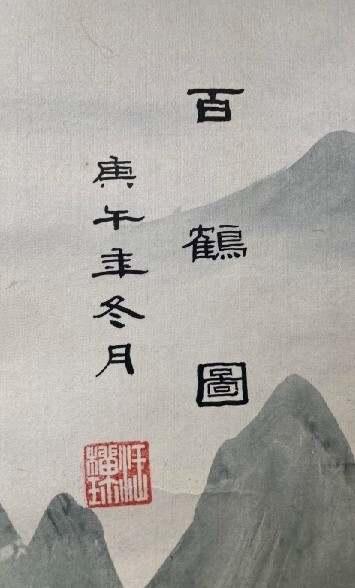 百鶴圖
庚午年冬月